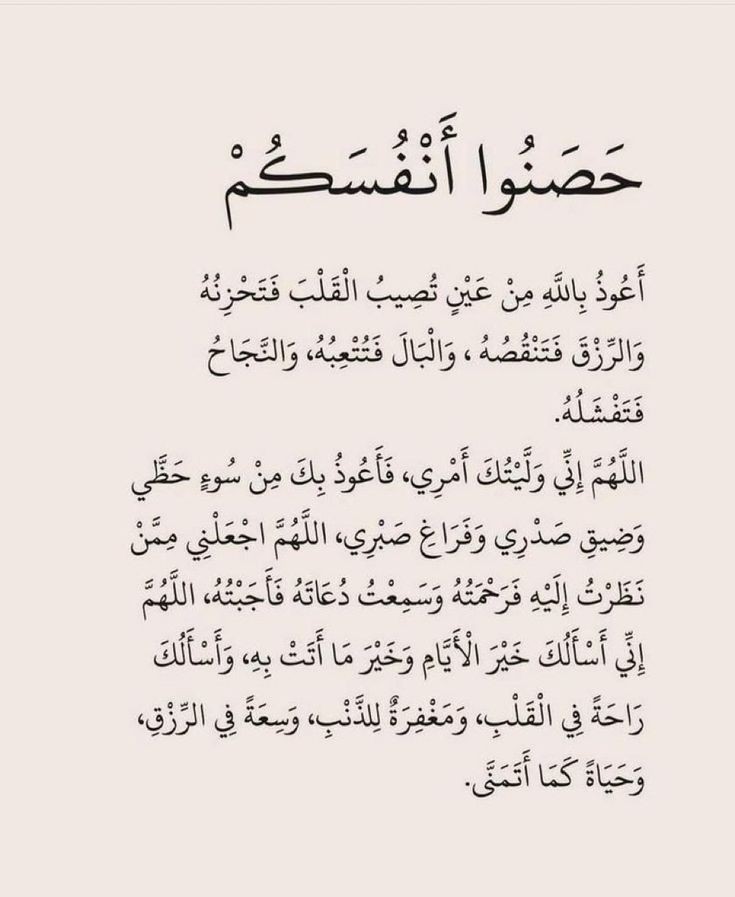 حَصَنُوا أَنْفُسَكُمْ
أَعُوذُ بِاللَّهِ مِنْ عَيْنٍ تُصِيبُ الْقَلْبَ فَتَحْزِنُهُ
وَالرِّزْقَ فَتَنْقُصُهُ ، وَالْبَالَ فَتُتْعِبُهُ، وَالنَّجَاحُ
فَتَفْشَلُهُ.
اللَّهُمَّ إِنِّي وَلَّيْتُكَ أَمْرِي، فَأَعُوذُ بِكَ مِنْ سُوءٍ حَظَّي
وَضِيقِ صَدْرِي وَفَرَاغِ صَبْرِي، اللَّهُمَّ اجْعَلْنِي مِمَّنْ
نَظَرْتُ إِلَيْهِ فَرَحْمَتُهُ وَسَمِعْتُ دُعَاتَهُ فَأَجَبْتُهُ، اللَّهُمَّ
إِنِّي أَسْأَلُكَ خَيْرَ الْأَيَّامِ وَخَيْرَ مَا أَتَتْ بِهِ، وَأَسْأَلُكَ
رَاحَةً فِي الْقَلْبِ، وَمَغْفِرَةٌ لِلذَّنْبِ، وَسِعَةً فِي الرِّزْقِ،
وَحَيَاةً كَمَا أَتَمَنَّى.